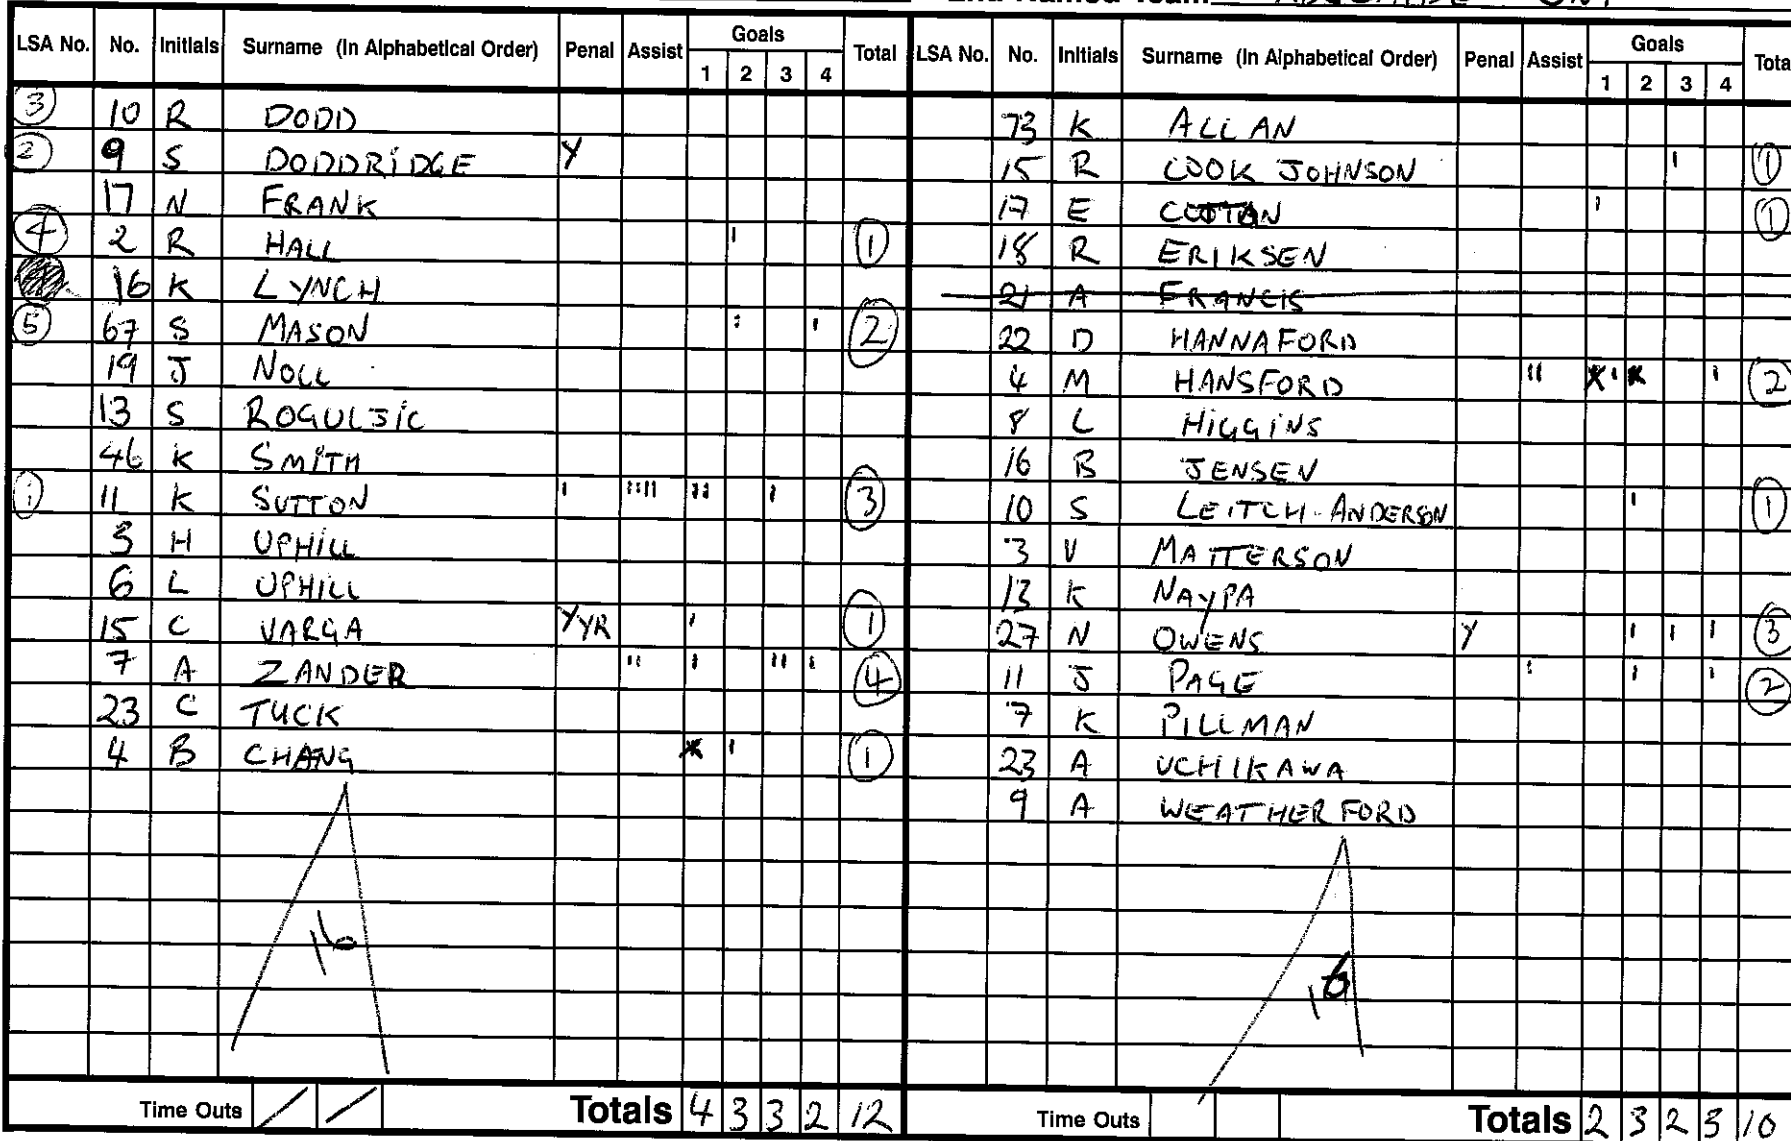 2nd Named Team ADELAIDE UNI
LSA No. No. Initials Surname (In Alphabetical Order) Penal Assist Goals 1 2 3 4 Total
3 10 R DODD
2 9 S DODDRIDGE Y
17 N FRANK
4 2 R HALL ' 1
16 K LYNCH
5 67 S MASON ' ' 2
19 J NOLL
13 S ROGULJIC
46 K SMITH
1 11 K SUTTON ' '''' '' ' 3
3 H UPHILL
6 L UPHILL
15 C VARGA YYR ' 1
7 A ZANDER '' ' '' ' 4
23 C TUCK
4 B CHANG ' 1
16
Time Outs / / Totals 4 3 3 2 12
LSA No. No. Initials Surname (In Alphabetical Order) Penal Assist Goals 1 2 3 4 Tota
73 K ALLAN
15 R COOK JOHNSON ' 1
17 E ' 1
18 R ERIKSEN
21 A FRANCIS
22 D HANNAFORD
4 M HANSFORD '' ' ' 2
8 L HIGGINS
16 B JENSEN
10 S LEITCH-ANDERSON ' 1
3 V MATTERSON
13 K NAYPA
27 N OWENS Y ' ' ' 3
11 J PAGE ' ' ' 2
7 K PILLMAN
23 A UCHIKAWA
9 A WEATHERFORD
16
Time Outs Totals 2 3 2 3 10